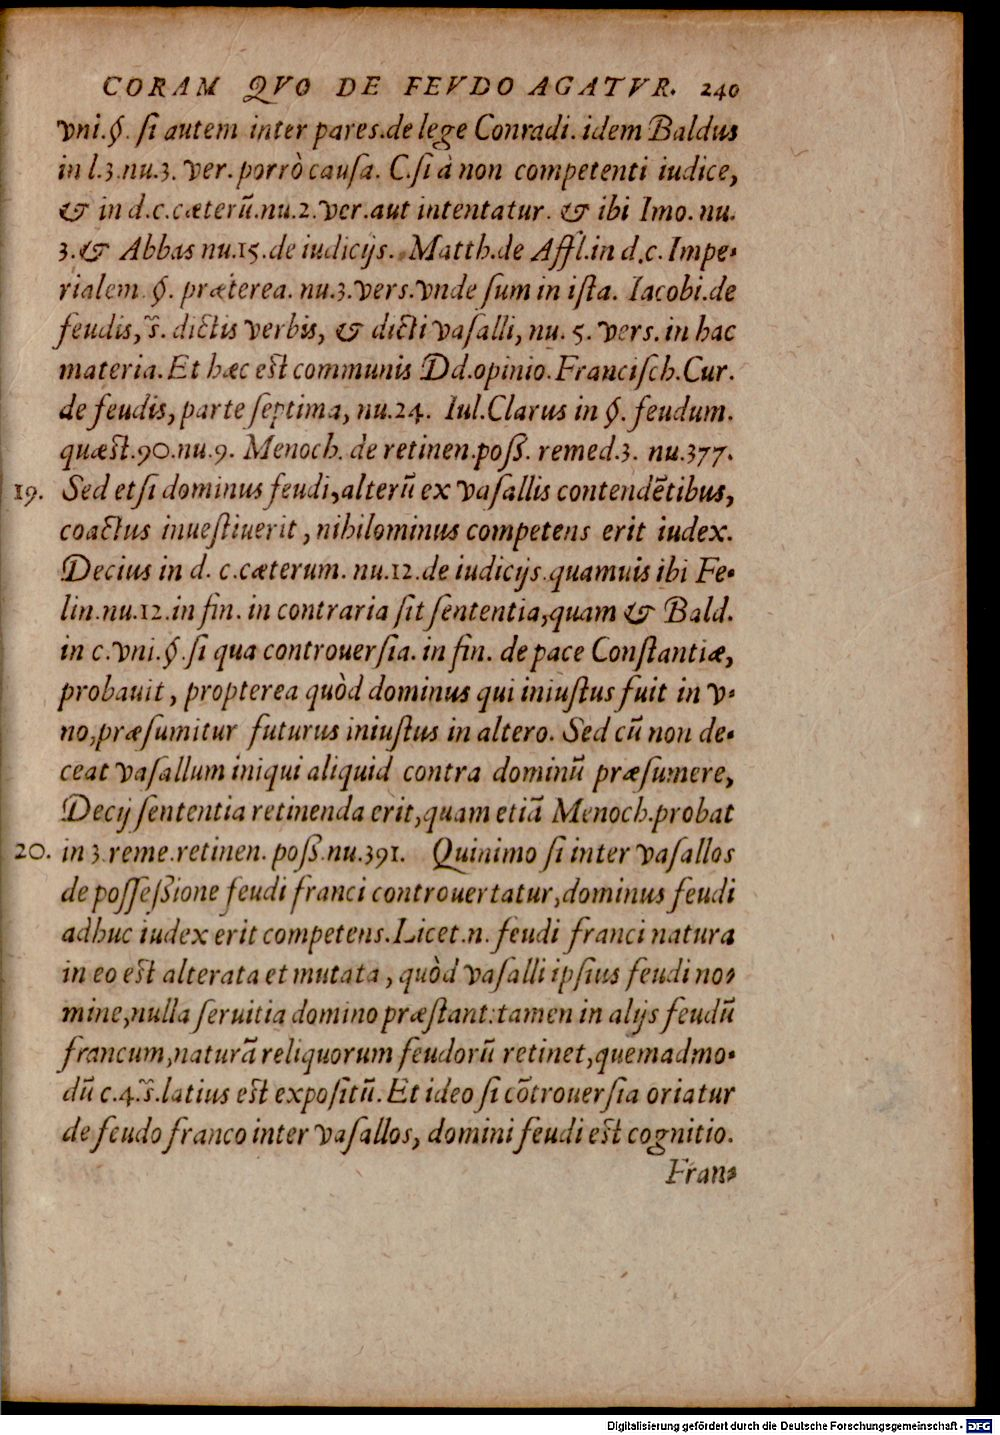 CORAM QVO DE FEVDO AGATVR. 240
vni.§. ſi autem inter pares.de lege Conradi. idem Baldus
in l.3.nu.3. ver. porrò cauſa. C.ſi à non competenti iudice,
& in d.c.cæterũ.nu.2.ver.aut intentatur. & ibi Imo. nu.
3.& Abbas nu.15.de iudicijs. Matth.de Affl.in d.c. Impe-
rialem §. præterea. nu.3.vers.vnde ſum in iſta. Iacobi.de
feudis, s̃. dictis verbis, & dicti vaſalli, nu. 5. vers. in hac
materia. Et hæc est communis Dd.opinio. Franciſch.Cur.
de feudis, parte ſeptima, nu.24. Iul.Clarus in §. feudum.
quæst.90.nu.9. Menoch. de retinen.poſß. remed.3. nu.377.
19. Sed etſi dominus feudi,alterũ ex vaſallis contendẽtibus,
coactus inueſtiuerit, nihilominus competens erit iudex.
Decius in d. c.cæterum. nu.12.de iudicijs.quamuis ibi Fe-
lin.nu.12.in fin. in contraria ſit ſententia,quam & Bald.
in c.vni.§.ſi qua controuerſia. in fin. de pace Conſtantiæ,
probauit, propterea quòd dominus qui iniuſtus fuit in v-
no,præſumitur futurus iniuſtus in altero. Sed cũ non de-
ceat vaſallum iniqui aliquid contra dominũ præſumere,
Decij ſententia retinenda erit,quam etiã Menoch.probat
20. in 3.reme.retinen. poß.nu.391. Quinimo ſi inter vaſallos
de poſſeßione feudi franci controuertatur,dominus feudi
adhuc iudex erit competens.Licet.n. feudi franci natura
in eo est alterata et mutata, quòd vaſalli ipſius feudi no-
mine,nulla ſeruitia domino præſtant:tamen in alijs feudũ
francum,naturã reliquorum feudorũ retinet,quemadmo-
dũ c.4.s̃.latius est expoſitũ. Et ideo ſi cõtrouerſia oriatur
de feudo franco inter vaſallos, domini feudi est cognitio.
Fran-
Digitalisierung gefördert durch die Deutsche Forschungsgemeinschaft - DFG